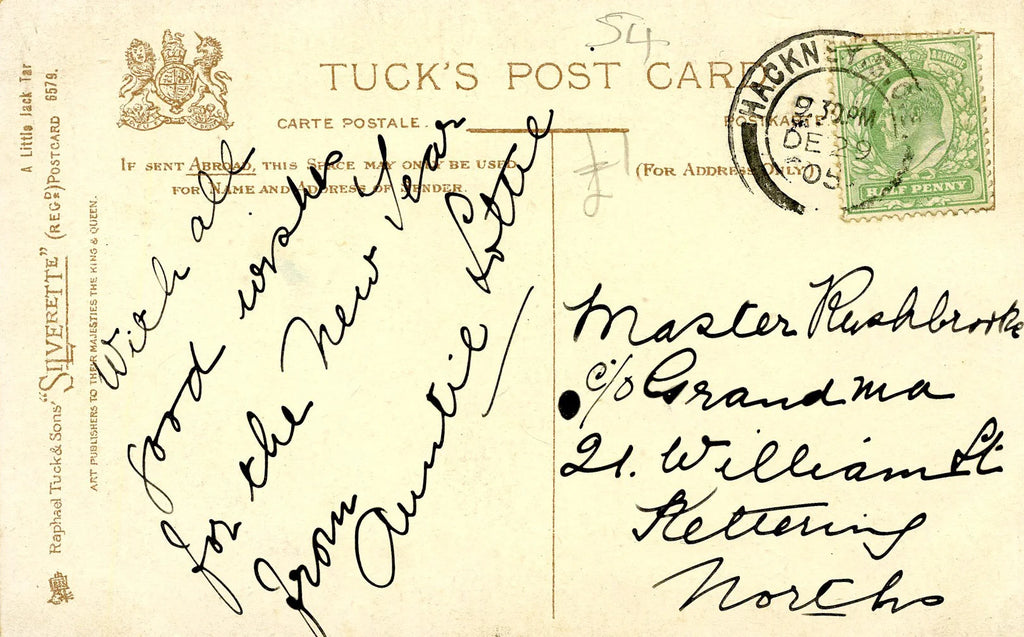 54
TUCK'S POST CARD
CARTE POSTALE.
POSTKARTE
IF SENT ABROAD, THIS SPACE MAY ONLY BE USED
FOR NAME AND ADDRESS OF SENDER.
(FOR ADDRESS ONLY)
HACKNEY
9.30 PM
DE 29
05
HALF PENNY
A Little Jack Tar
Raphael Tuck & Sons' "SILVERETTE" (REGD) POSTCARD 6579.
ART PUBLISHERS TO THEIR MAJESTIES THE KING & QUEEN.
With all
good wishes
for the New Year
from
Auntie Lottie
Master Rushbrooke
c/o Grandma
21. William St.
Kettering
Norths